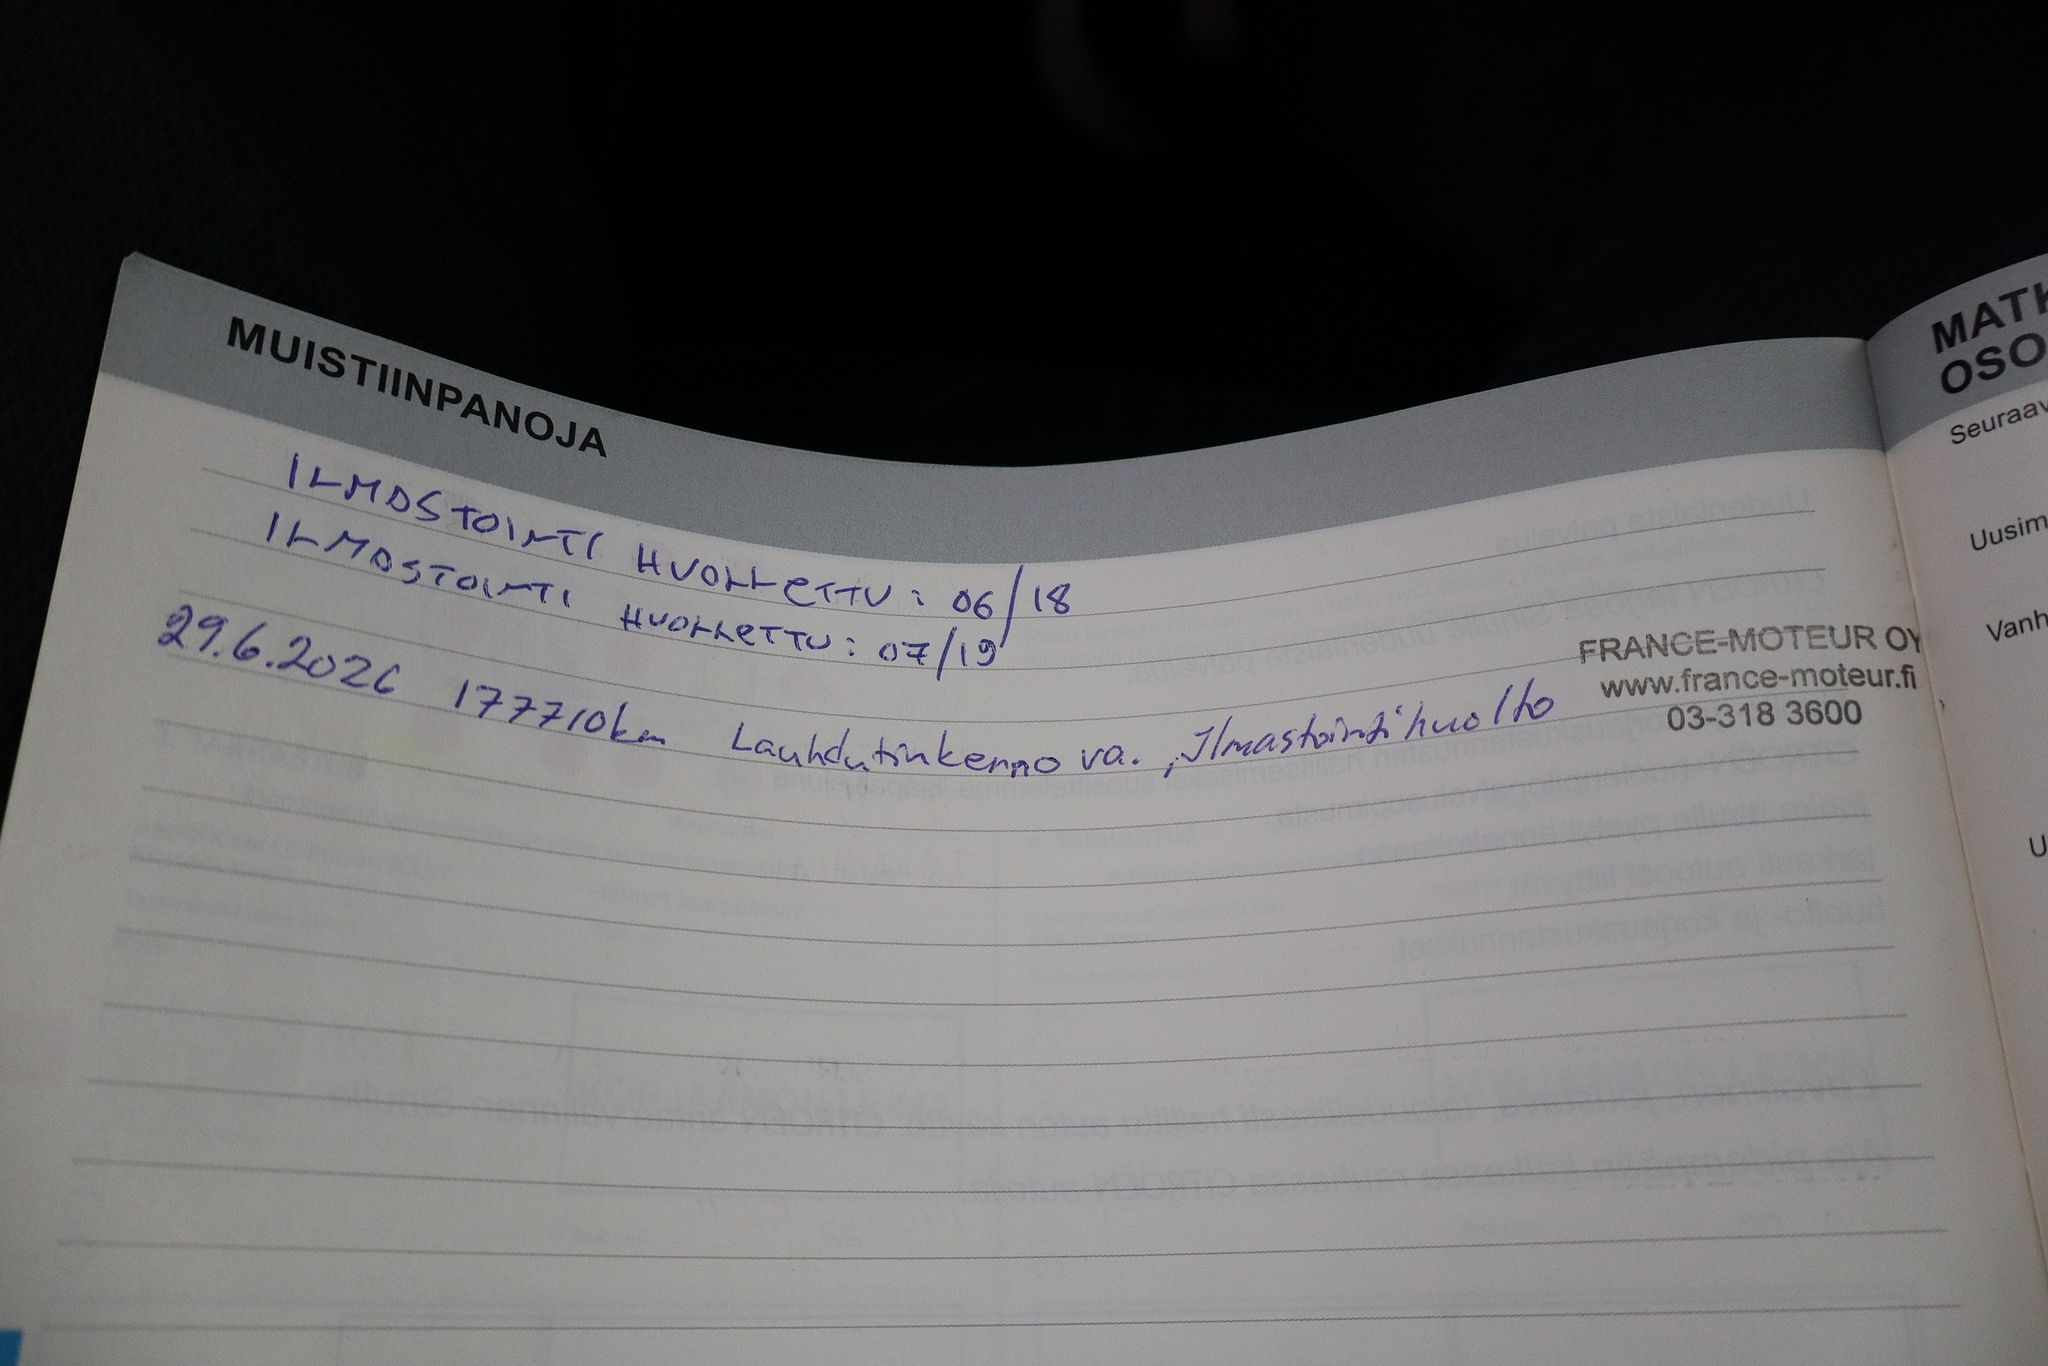 MUISTIINPANOJA
ILMOSTOINTI HUOLLETTU: 06/18
ILMOSTOINTI HUOLLETTU: 07/19
29.6.2026 177710km Lauhdutinkenno va., Ilmastointihuolto
FRANCE-MOTEUR OY
www.france-moteur.fi
03-318 3600
MATK
OSO
Seuraav
Uusim
Vanh
U